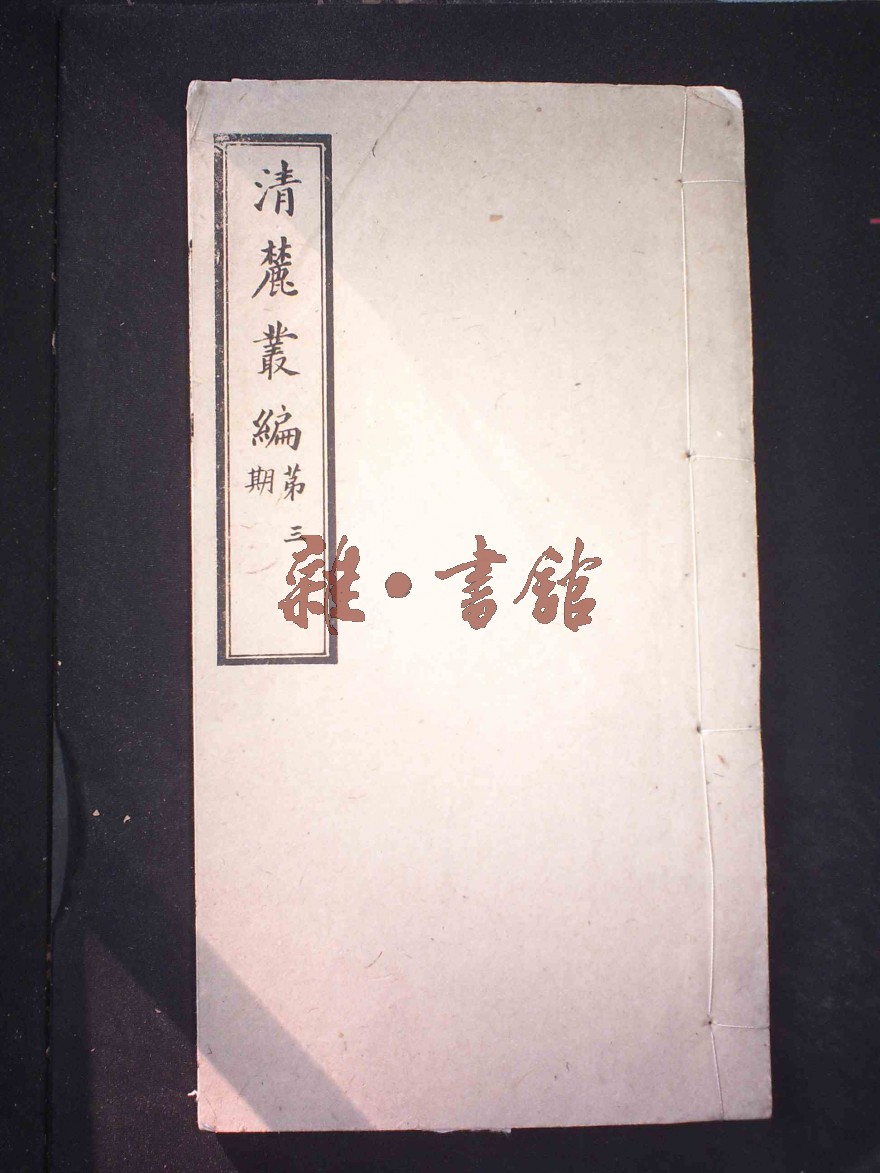 清麓叢編
第三
期
雜·書館